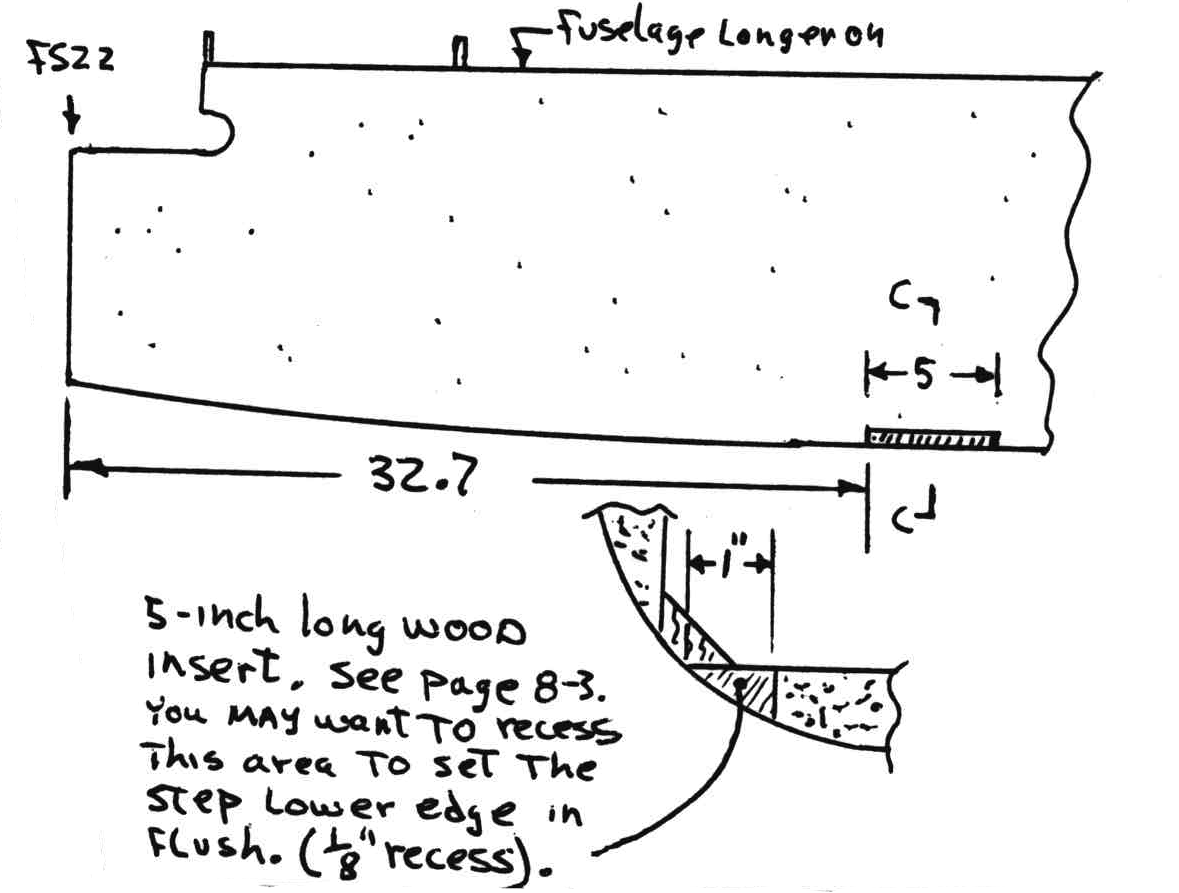 Fuselage Longeron
FS22
C
5
32.7
C
1"
5-inch long WOOD
insert. See page 8-3.
You MAY want TO recess
This area TO set The
step Lower edge in
FLush. (1/8" recess).